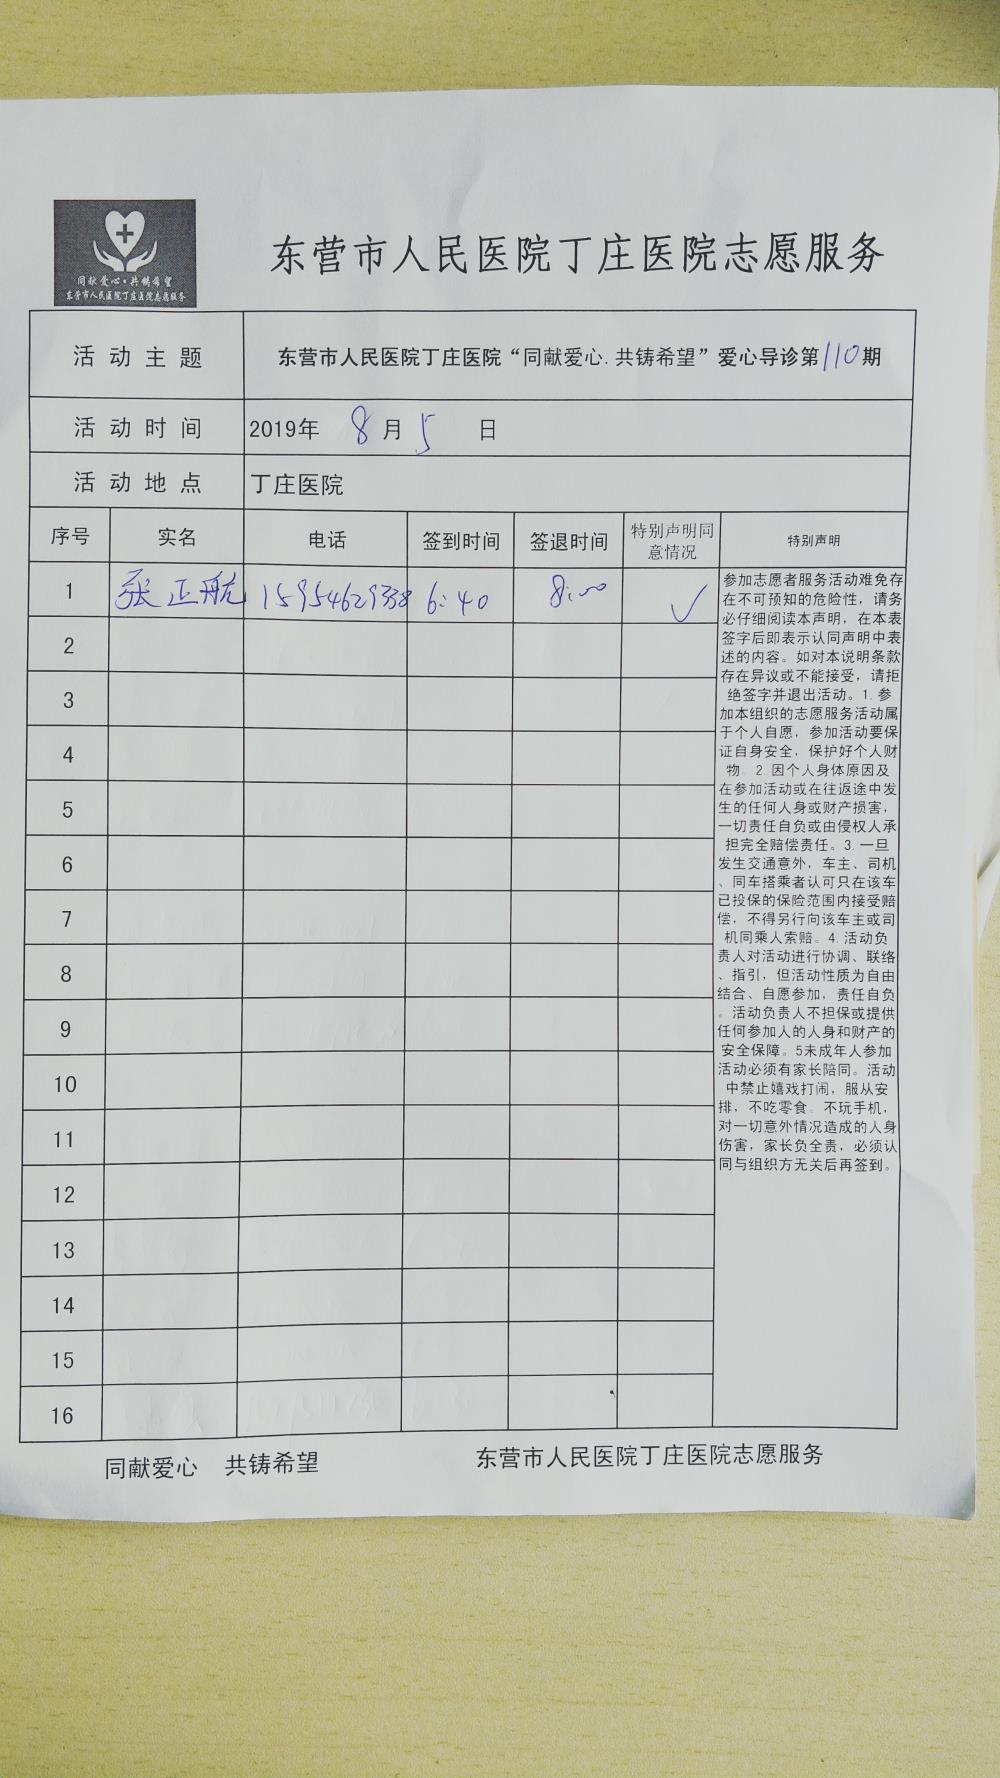 同献爱心·共铸希望
东营市人民医院丁庄医院志愿服务
东营市人民医院丁庄医院志愿服务
活动主题 东营市人民医院丁庄医院“同献爱心.共铸希望”爱心导诊第110期
活动时间 2019年 8月5日
活动地点 丁庄医院
序号 实名 电话 签到时间 签退时间 特别声明同意情况 特别声明
1 张正航 15954629338 6:40 8:00 ✓
2
3
4
5
6
7
8
9
10
11
12
13
14
15
16
参加志愿者服务活动难免存
在不可预知的危险性，请务
必仔细阅读本声明，在本表
签字后即表示认同声明中表
述的内容。如对本说明条款
存在异议或不能接受，请拒
绝签字并退出活动。1.参
加本组织的志愿服务活动属
于个人自愿，参加活动要保
证自身安全，保护好个人财
物。2 因个人身体原因及
在参加活动或在往返途中发
生的任何人身或财产损害，
一切责任自负或由侵权人承
担完全赔偿责任。3.一旦
发生交通意外，车主、司机
、同车搭乘者认可只在该车
已投保的保险范围内接受赔
偿，不得另行向该车主或司
机同乘人索赔。4.活动负
责人对活动进行协调、联络
、指引，但活动性质为自由
结合、自愿参加，责任自负
。活动负责人不担保或提供
任何参加人的人身和财产的
安全保障。5未成年人参加
活动必须有家长陪同。活动
中禁止嬉戏打闹，服从安
排，不吃零食。不玩手机，
对一切意外情况造成的人身
伤害，家长负全责，必须认
同与组织方无关后再签到。
同献爱心 共铸希望 东营市人民医院丁庄医院志愿服务